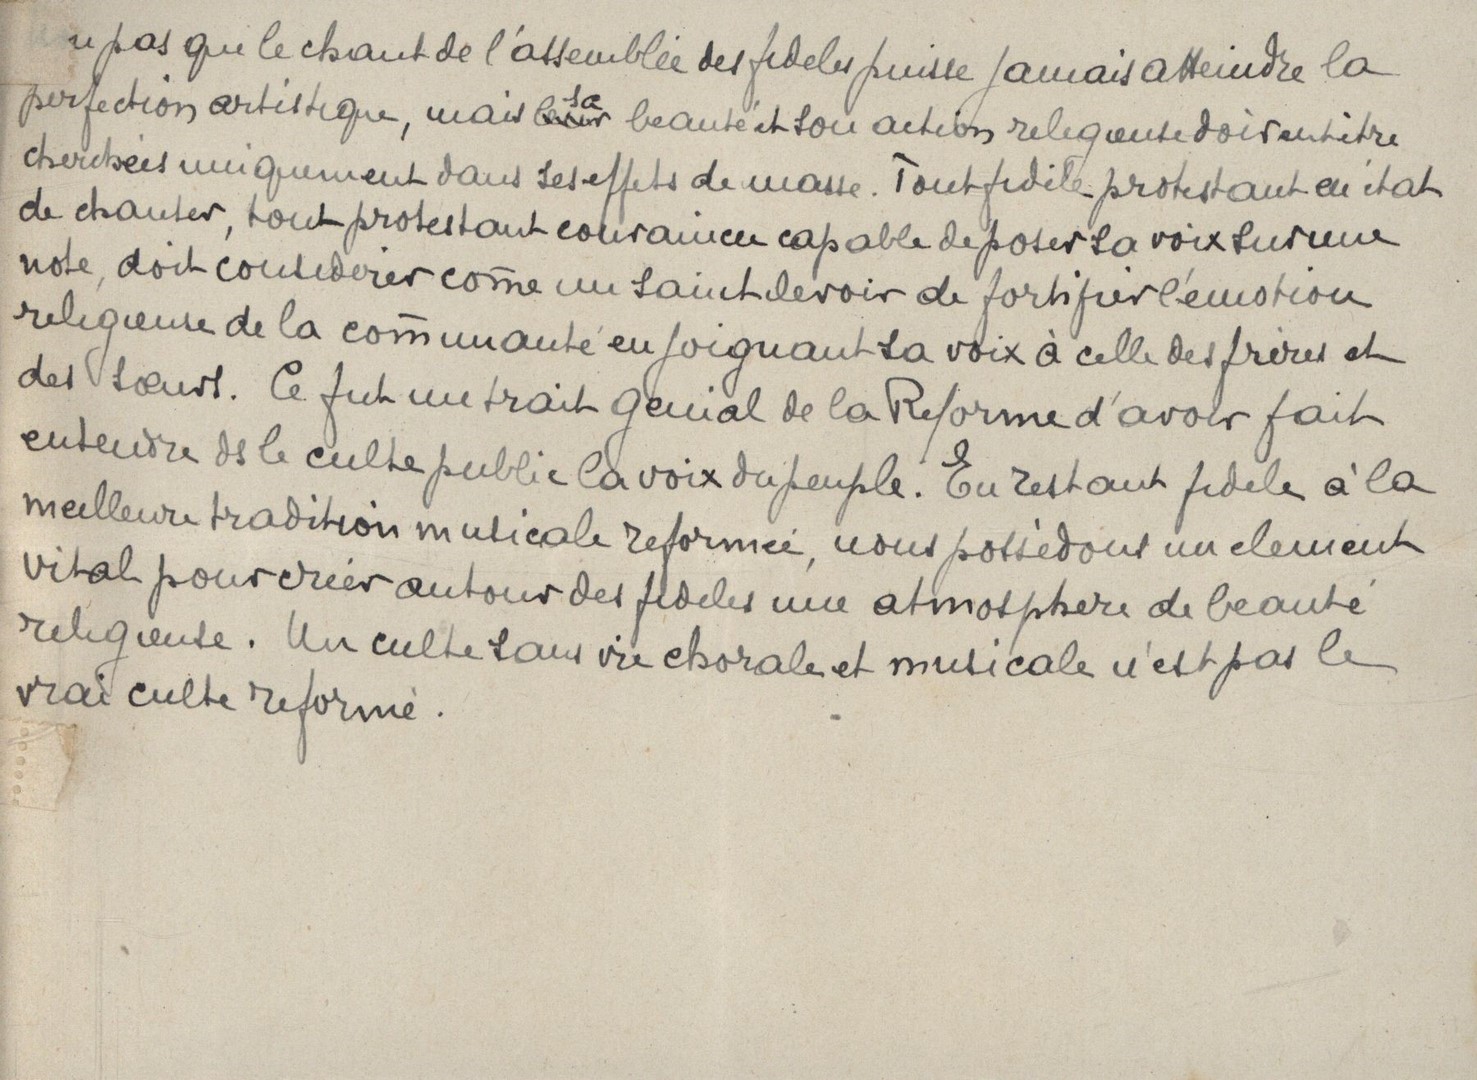 pas que le chant de l'assemblée des fideles puisse jamais atteindre la
perfection artistique, mais leur sa beauté et son action religieuse doivent être
cherchées uniquement dans ses effets de masse. Tout fidèle protestant en état
de chanter, tout protestant convaincu capable de poser sa voix sur une
note, doit considérer com̄e un saint devoir de fortifier l'émotion
religieuse de la com̄unauté en joignant sa voix à celle des frères et
des sœurs. Ce fut un trait genial de la Reforme d'avoir fait
entendre ds le culte public la voix du peuple. En restant fidele à la
meilleure tradition musicale reformée, nous possédons un element
vital pour créer autour des fideles une atmosphere de beauté
religieuse. Un culte sans vie chorale et musicale n'est pas le
vrai culte reformé.